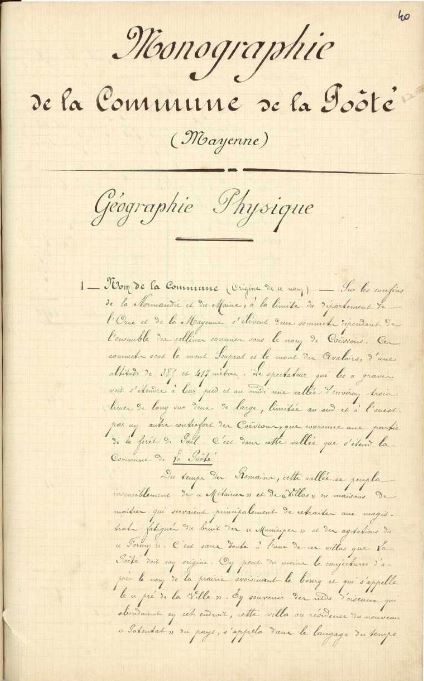 40
Monographie
de la Commune de la Poôté
(Mayenne)
Géographie Physique
1 — Nom de la Commune (Origine de ce nom) — Sur les confins
de la Normandie et du Maine, à la limite du département de
l'Orne et de la Mayenne s'élèvent deux sommets dépendant de
l'ensemble des collines connues sous le nom de Coëvrons. Ces
sommets sont le mont Souprat et le mont des Avaloirs, d'une
altitude de 385 et 417 mètres. Le spectateur qui les a gravis
voit s'étendre à leur pied et au midi une vallée d'environ trois
lieues de long sur deux de large, limitée au sud et à l'ouest
par un autre contrefort des Coëvrons, que couronne une partie
de la forêt de Pail. C'est dans cette vallée que s'étend la
Commune de la Poôté.
Du temps des Romains, cette vallée se peupla
insensiblement de « Métairies » et de « Villas » ou maisons de
maîtres qui servaient principalement de retraites aux magis-
trats fatigués du bruit des « Municipes » et des agitations du
« Forum ». C'est sans doute à l'une de ces villas que la
Poôté doit son origine. On peut du moins le conjecturer d'a-
près le nom de la prairie avoisinant le bourg et qui s'appelle
le « pré de la Ville ». En souvenir des nids d'oiseaux qui
abondaient en cet endroit, cette villa ou résidence du nouveau
« Potentat » du pays, s'appela dans le langage du temps